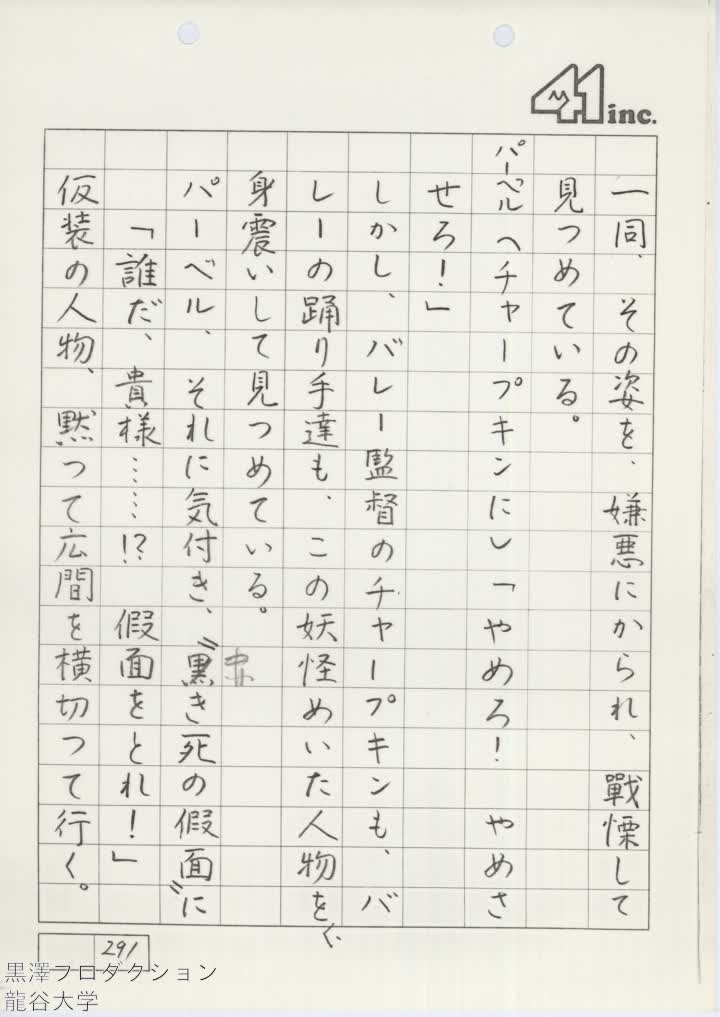 41 inc.
一同、その姿を、嫌悪にかられ、戰慄して
見つめている。
パーベル へチャープキンにし「やめろ！　やめさ
せろ！」
しかし、バレー監督のチャープキンも、バ
レーの踊り手達も、この妖怪めいた人物を
身震いして見つめている。
パーベル、それに気付き、〝黒き死の假面〟に
赤
「誰だ、貴様……!?　假面をとれ！」
仮装の人物、黙って広間を横切って行く。
291
黒澤プロダクション
龍谷大学